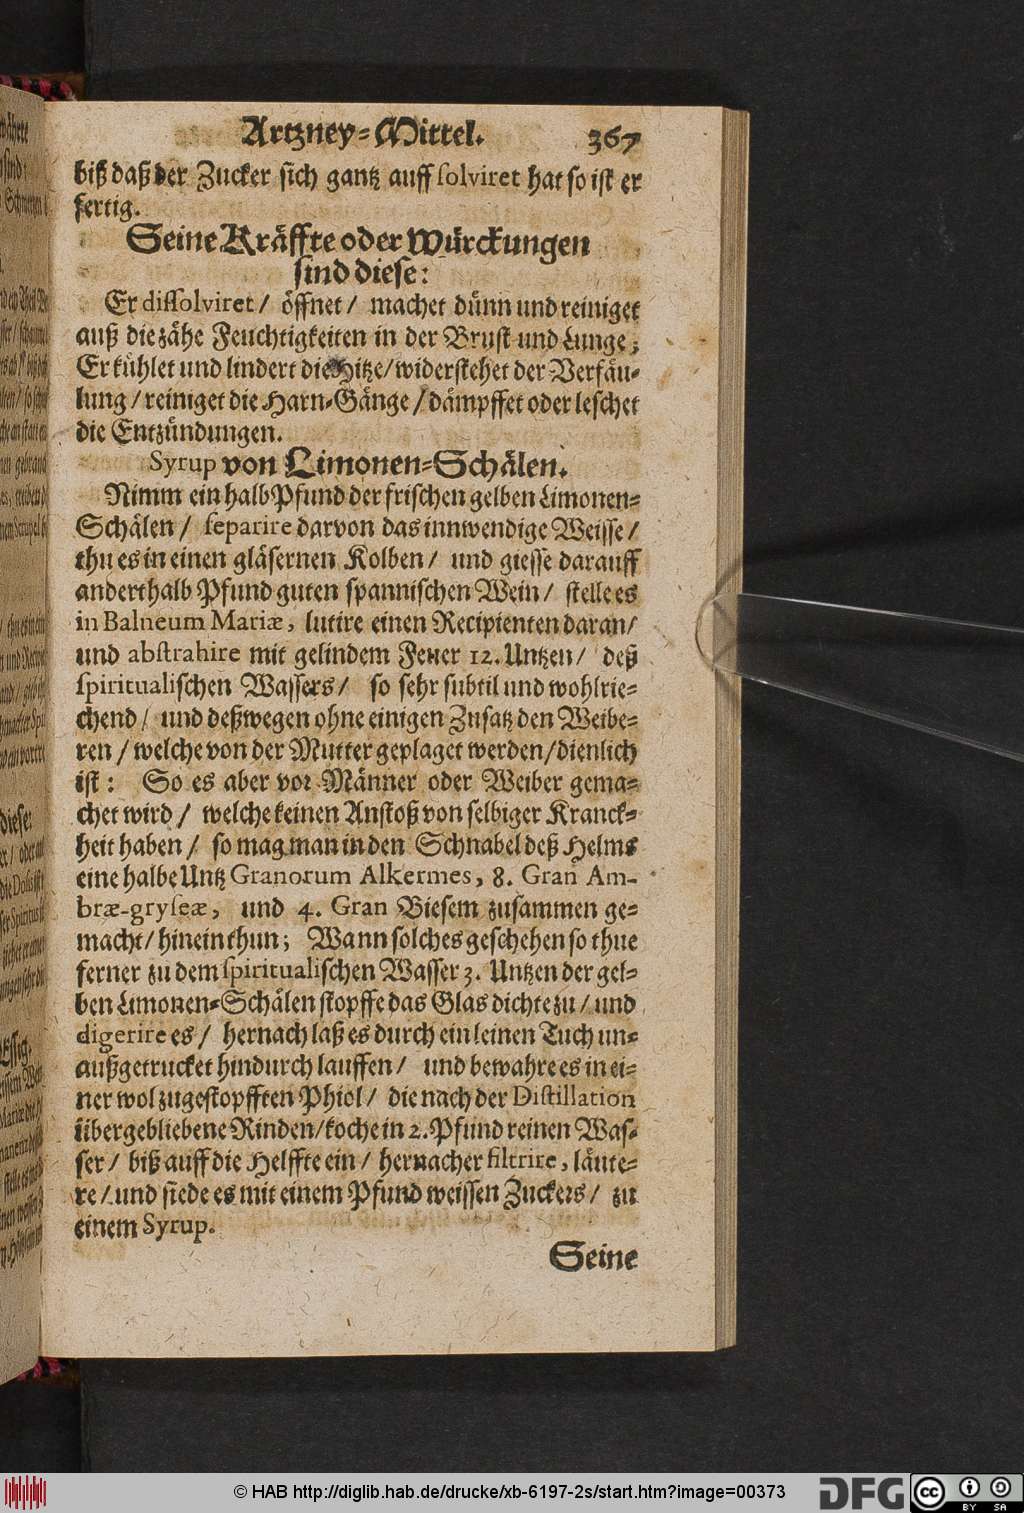 Artzney-Mittel. 367
biß daß der Zucker sich gantz auff solviret hat so ist er
fertig.
Seine Kräffte oder Würckungen
sind diese:
Er dissolviret / öffnet / machet dünn und reiniget
auß die zähe Feuchtigkeiten in der Brust und Lunge;
Er kühlet und lindert die Hitze / widerstehet der Verfäu-
lung / reiniget die Harn-Gänge / dämpffet oder leschet
die Entzündungen.
Syrup von Limonen-Schälen.
Nimm ein halb Pfund der frischen gelben Limonen-
Schälen / separire darvon das innwendige Weisse /
thu es in einen gläsernen Kolben / und giesse darauff
anderthalb Pfund guten spannischen Wein / stelle es
in Balneum Mariæ, lutire einen Recipienten daran /
und abstrahire mit gelindem Feuer 12. Untzen / deß
spiritualischen Wassers / so sehr subtil und wohlrie-
chend / und deßwegen ohne einigen Zusatz den Weibe-
ren / welche von der Mutter geplaget werden / dienlich
ist: So es aber vor Männer oder Weiber gema-
chet wird / welche keinen Anstoß von selbiger Kranck-
heit haben / so mag man in den Schnabel deß Helms
eine halbe Untz Granorum Alkermes, 8. Gran Am-
bræ-gryseæ, und 4. Gran Biesem zusammen ge-
macht / hinein thun; Wann solches geschehen so thue
ferner zu dem spiritualischen Wasser 3. Untzen der gel-
ben Limonen-Schälen stopffe das Glas dichte zu / und
digerire es / hernach laß es durch ein leinen Tuch un-
außgetrucket hindurch lauffen / und bewahre es in ei-
ner wol zugestopfften Phiol / die nach der Distillation
übergebliebene Rinden / koche in 2. Pfund reinen Was-
ser / biß auff die Helffte ein / hernacher filtrire, läute-
re / und siede es mit einem Pfund weissen Zuckers / zu
einem Syrup.
Seine
© HAB http://diglib.hab.de/drucke/xb-6197-2s/start.htm?image=00373
DFG
cc BY SA